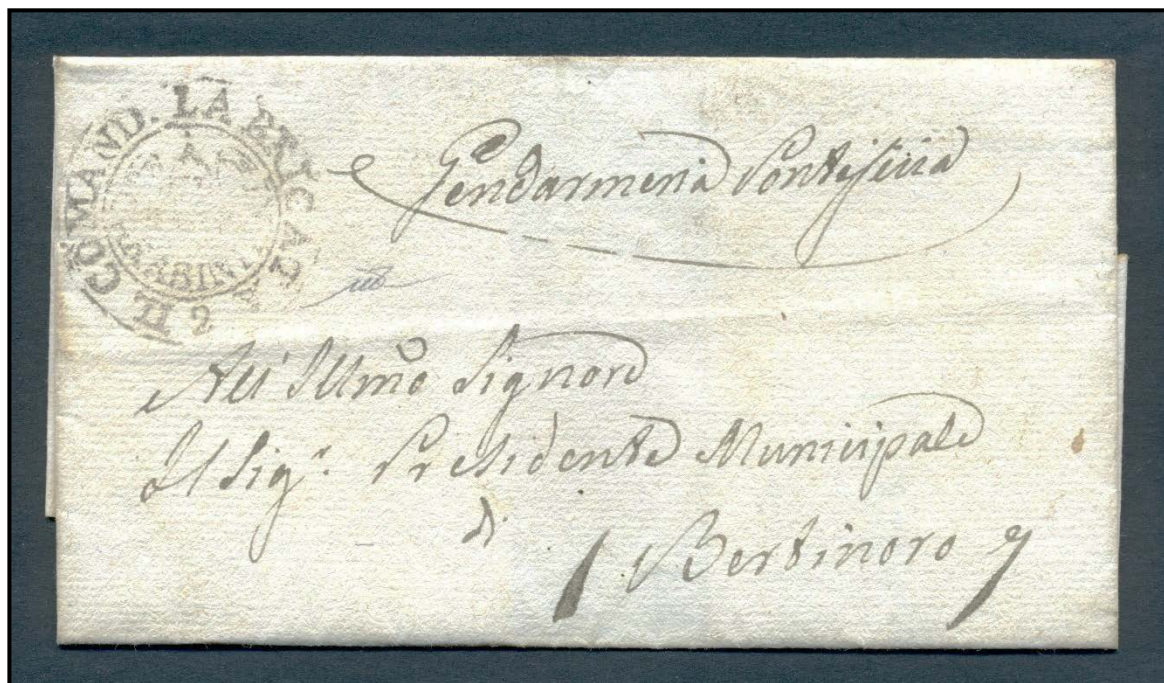 IL COMAND. LA BRIGATA
2
Gendarmeria Pontificia
All' Illmo Signore
Il Sig.r Presidente Municipale
di
Bertinoro